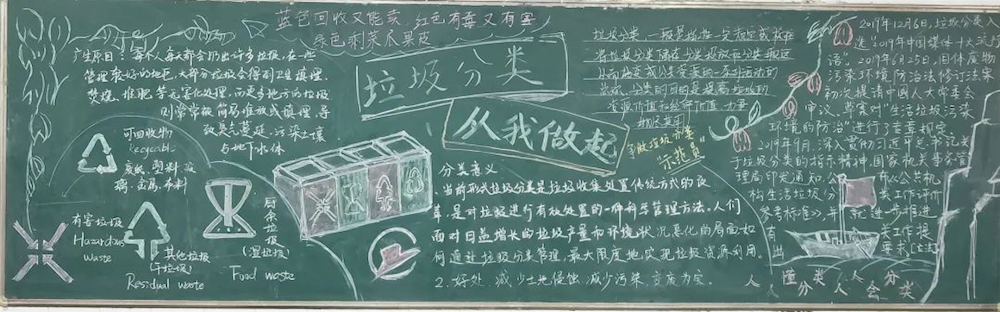 蓝色回收又能卖,红色有毒又有害
绿色剩菜瓜果皮
产生原因:每个人每天都会扔出许多垃圾,在一些
管理较好的地区,大部分垃圾会得到卫生填埋、
焚烧、堆肥等无害化处理,而更多地方的垃圾
则常常被简易堆放或填埋,导
致臭气蔓延,污染土壤
与地下水体
可回收物
Recyclable
废纸 塑料 玻
璃 金属 布料
有害垃圾
Hazardous
waste
其他垃圾
(干垃圾)
Residual waste
厨余垃圾
(湿垃圾)
Food waste
垃圾分类
从我做起
争做垃圾分类
"示范员"
垃圾分类,一般是指按一定规定或标准
将垃圾分类储存、分类投放和分类搬运
从而转变成公共资源的一系列活动的
总称,分类的目的是提高垃圾的
资源价值和经济价值,力争
物尽其用
分类意义
1.当前形式垃圾分类是垃圾收集处置传统方式的改
革,是对垃圾进行有效处置的一种科学管理方法。人们
面对日益增长的垃圾产量和环境状况恶化的局面,如
何通过垃圾分类管理,最大限度地实现垃圾资源利用。
2.好处 减少土地侵蚀 减少污染 变废为宝
2019年12月6日,垃圾分类入
选"2019年中国媒体十大流行
语"。2019年6月25日,固体废物
污染环境防治法修订法案
初次提请中国人大常委会
审议,草案对"生活垃圾污染
环境的防治"进行了专章规定。
2019年9月,深入贯彻习近平总书记关
于垃圾分类的指示精神,国家机关事务管
理局印发通知,公布《公共机
构生活垃圾分类工作评价
参考标准》,并就进一步推进
有关工作提
出要求
人人懂分类 人人会分类